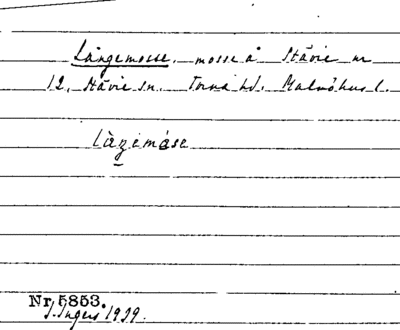 Långemosse, mosse å Stävie nr
12, Stävie sn. Torna hd. Malmöhus l.
làŋemósе
Nr 5853.
I. Ingers 1939.